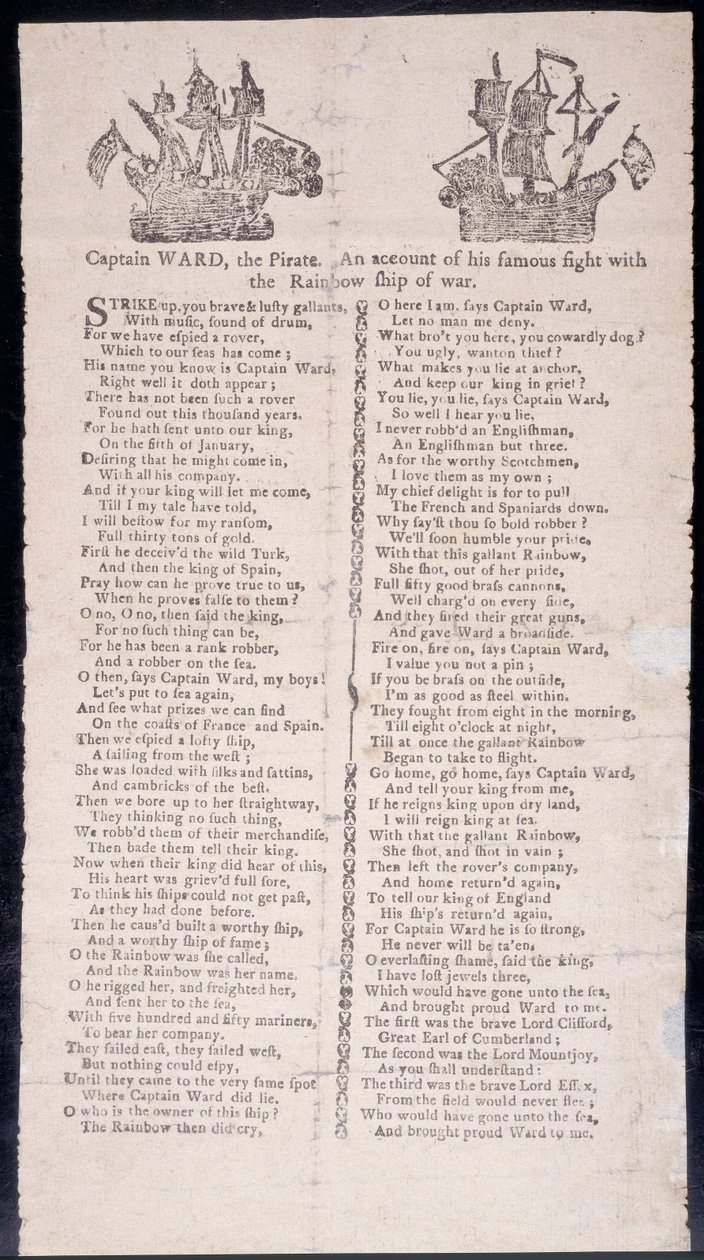 Captain WARD, the Pirate. An aceount of his famous fight with
the Rainbow ſhip of war.
STRIKE up, you brave & luſty gallants,
With muſic, ſound of drum,
For we have eſpied a rover,
Which to our ſeas has come ;
His name you know is Captain Ward,
Right well it doth appear ;
There has not been ſuch a rover
Found out this thouſand years.
For he hath ſent unto our king,
On the fifth of January,
Deſiring that he might come in,
With all his company.
And if your king will let me come,
Till I my tale have told,
I will beſtow for my ranſom,
Full thirty tons of gold.
Firſt he deceiv'd the wild Turk,
And then the king of Spain,
Pray how can he prove true to us,
When he proves falſe to them ?
O no, O no, then ſaid the king,
For no ſuch thing can be,
For he has been a rank robber,
And a robber on the ſea.
O then, ſays Captain Ward, my boys !
Let's put to ſea again,
And ſee what prizes we can find
On the coaſts of France and Spain.
Then we eſpied a lofty ſhip,
A ſailing from the weſt ;
She was loaded with ſilks and ſattins,
And cambricks of the beſt.
Then we bore up to her ſtraightway,
They thinking no ſuch thing,
We robb'd them of their merchandiſe,
Then bade them tell their king.
Now when their king did hear of this,
His heart was griev'd full ſore,
To think his ſhips could not get paſt,
As they had done before.
Then he caus'd built a worthy ſhip,
And a worthy ſhip of fame ;
O the Rainbow was ſhe called,
And the Rainbow was her name.
O he rigged her, and freighted her,
And ſent her to the ſea,
With five hundred and fifty mariners,
To bear her company.
They ſailed eaſt, they ſailed weſt,
But nothing could eſpy,
Until they came to the very ſame ſpot
Where Captain Ward did lie.
O who is the owner of this ſhip ?
The Rainbow then did cry,
O here I am, ſays Captain Ward,
Let no man me deny.
What bro't you here, you cowardly dog ?
You ugly, wanton thief ?
What makes you lie at anchor,
And keep our king in grief ?
You lie, you lie, ſays Captain Ward,
So well I hear you lie,
I never robb'd an Engliſhman,
An Engliſhman but three.
As for the worthy Scotchmen,
I love them as my own ;
My chief delight is for to pull
The French and Spaniards down.
Why ſay'ſt thou ſo bold robber ?
We'll ſoon humble your pride,
With that this gallant Rainbow,
She ſhot, out of her pride,
Full fifty good braſs cannons,
Well charg'd on every ſide,
And they fired their great guns,
And gave Ward a broadſide.
Fire on, fire on, ſays Captain Ward,
I value you not a pin ;
If you be braſs on the outſide,
I'm as good as ſteel within.
They fought from eight in the morning,
Till eight o'clock at night,
Till at once the gallant Rainbow
Began to take to flight.
Go home, go home, ſays Captain Ward,
And tell your king from me,
If he reigns king upon dry land,
I will reign king at ſea.
With that the gallant Rainbow,
She ſhot, and ſhot in vain ;
Then left the rover's company,
And home return'd again,
To tell our king of England
His ſhip's return'd again,
For Captain Ward he is ſo ſtrong,
He never will be ta'en.
O everlaſting ſhame, ſaid the king,
I have loſt jewels three,
Which would have gone unto the ſea,
And brought proud Ward to me.
The firſt was the brave Lord Clifford,
Great Earl of Cumberland ;
The ſecond was the Lord Mountjoy,
As you ſhall underſtand :
The third was the brave Lord Eſſex,
From the field would never flee ;
Who would have gone unto the ſea,
And brought proud Ward to me.